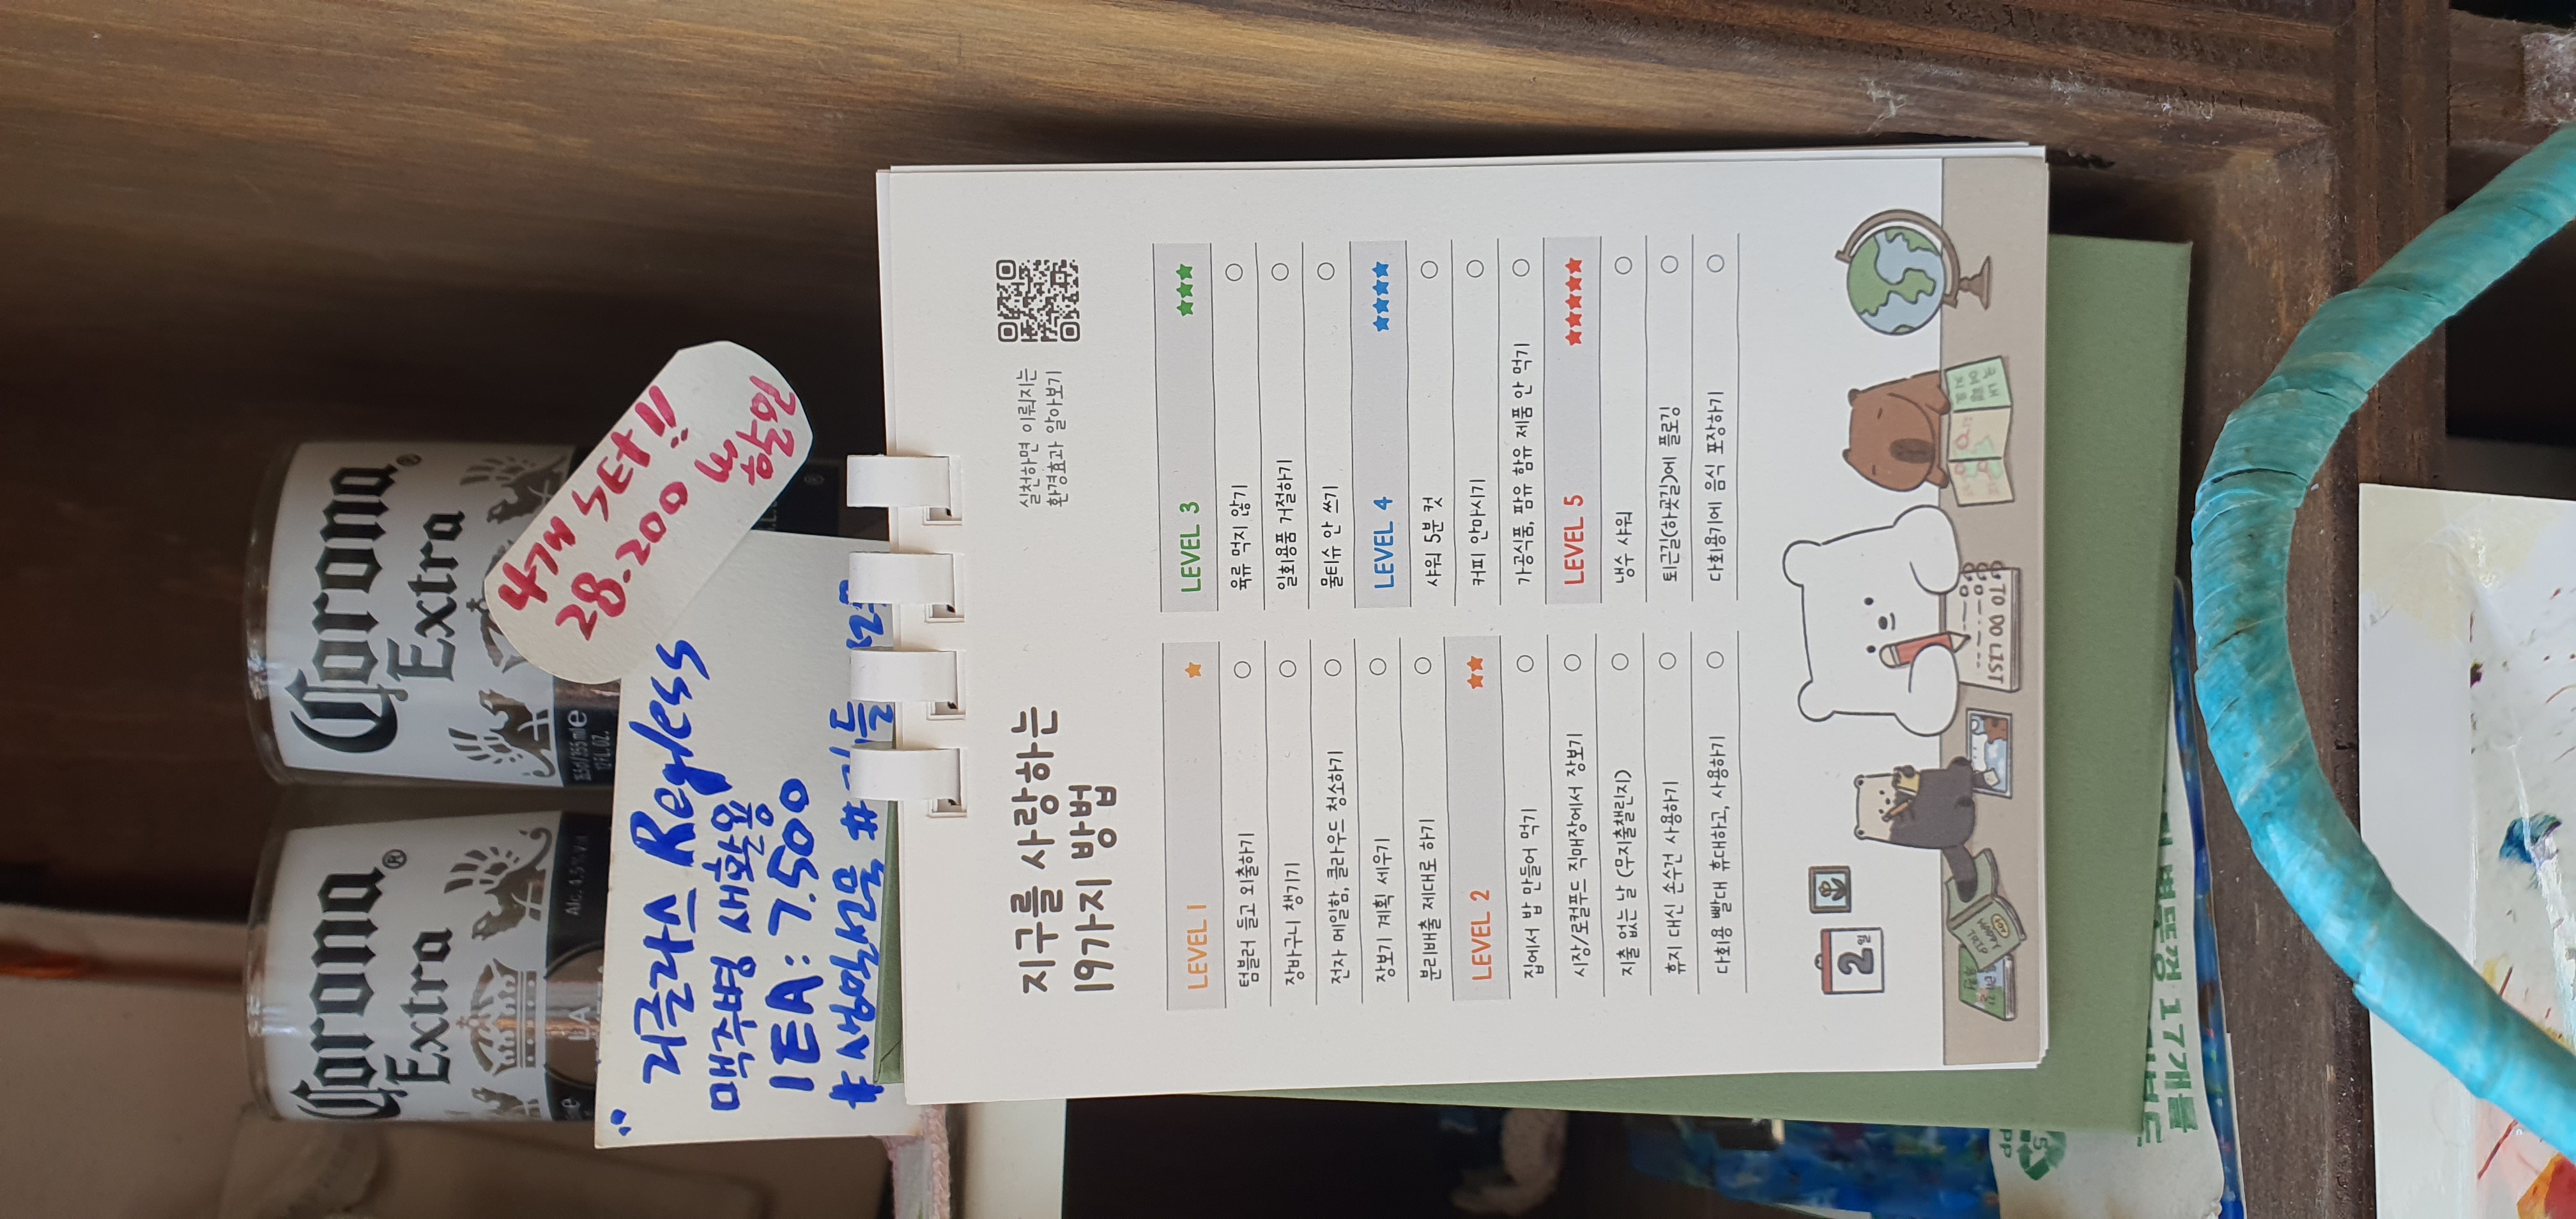 Corona
Extra
Corona
Extra
355ml/355 ml e
12 FL.OZ.
Alc. 4.5% Vol.
4개 SET!!
28.200
할인
리글라스 Regless
맥주병 새활용
1EA: 7.500
지구를 사랑하는
19가지 방법
실천하면 이뤄지는
환경효과 알아보기
LEVEL 1 ★
텀블러 들고 외출하기 ○
장바구니 챙기기 ○
전자 메일함, 클라우드 청소하기 ○
장보기 계획 세우기 ○
분리배출 제대로 하기 ○
LEVEL 2 ★★
집에서 밥 만들어 먹기 ○
시장/로컬푸드 직매장에서 장보기 ○
지출 없는 날 (무지출챌린지) ○
휴지 대신 손수건 사용하기 ○
다회용 빨대 휴대하고, 사용하기 ○
LEVEL 3 ★★★
육류 먹지 않기 ○
일회용품 거절하기 ○
물티슈 안 쓰기 ○
LEVEL 4 ★★★★
샤워 5분 컷 ○
커피 안마시기 ○
가공식품, 팜유 함유 제품 안 먹기 ○
LEVEL 5 ★★★★★
냉수 샤워 ○
퇴근길(하굣길)에 플로깅 ○
다회용기에 음식 포장하기 ○
2일
TRIP
TO DO LIST
17개를
PP